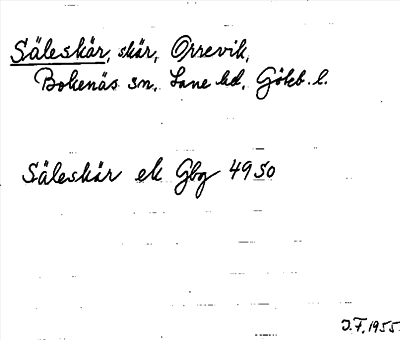 Säleskär, skär, Orrevik,
Bokenäs sn, Lane hd, Göteb. l.
Säleskär ek Gbg 49 50
J.F. 1955.